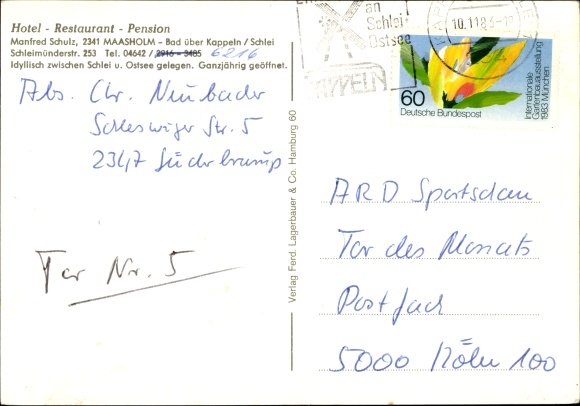 Hotel - Restaurant - Pension
Manfred Schulz, 2341 MAASHOLM – Bad über Kappeln / Schlei
Schleimünderstr. 253 Tel. 04642 / 2916 - 3485 6216
Idyllisch zwischen Schlei u. Ostsee gelegen. Ganzjährig geöffnet.
Abs. Chr. Neubader
Schleswiger Str. 5
2347 Süderbrarup
Tor Nr. 5
Verlag Ferd. Lagerbauer & Co. Hamburg 60
an
Schlei
Ostsee
KAPPELN
10.11.83
60
Deutsche Bundespost
Internationale
Gartenbauausstellung
1983 München
ARD Sportschau
Tor des Monats
Postfach
5000 Köln 100